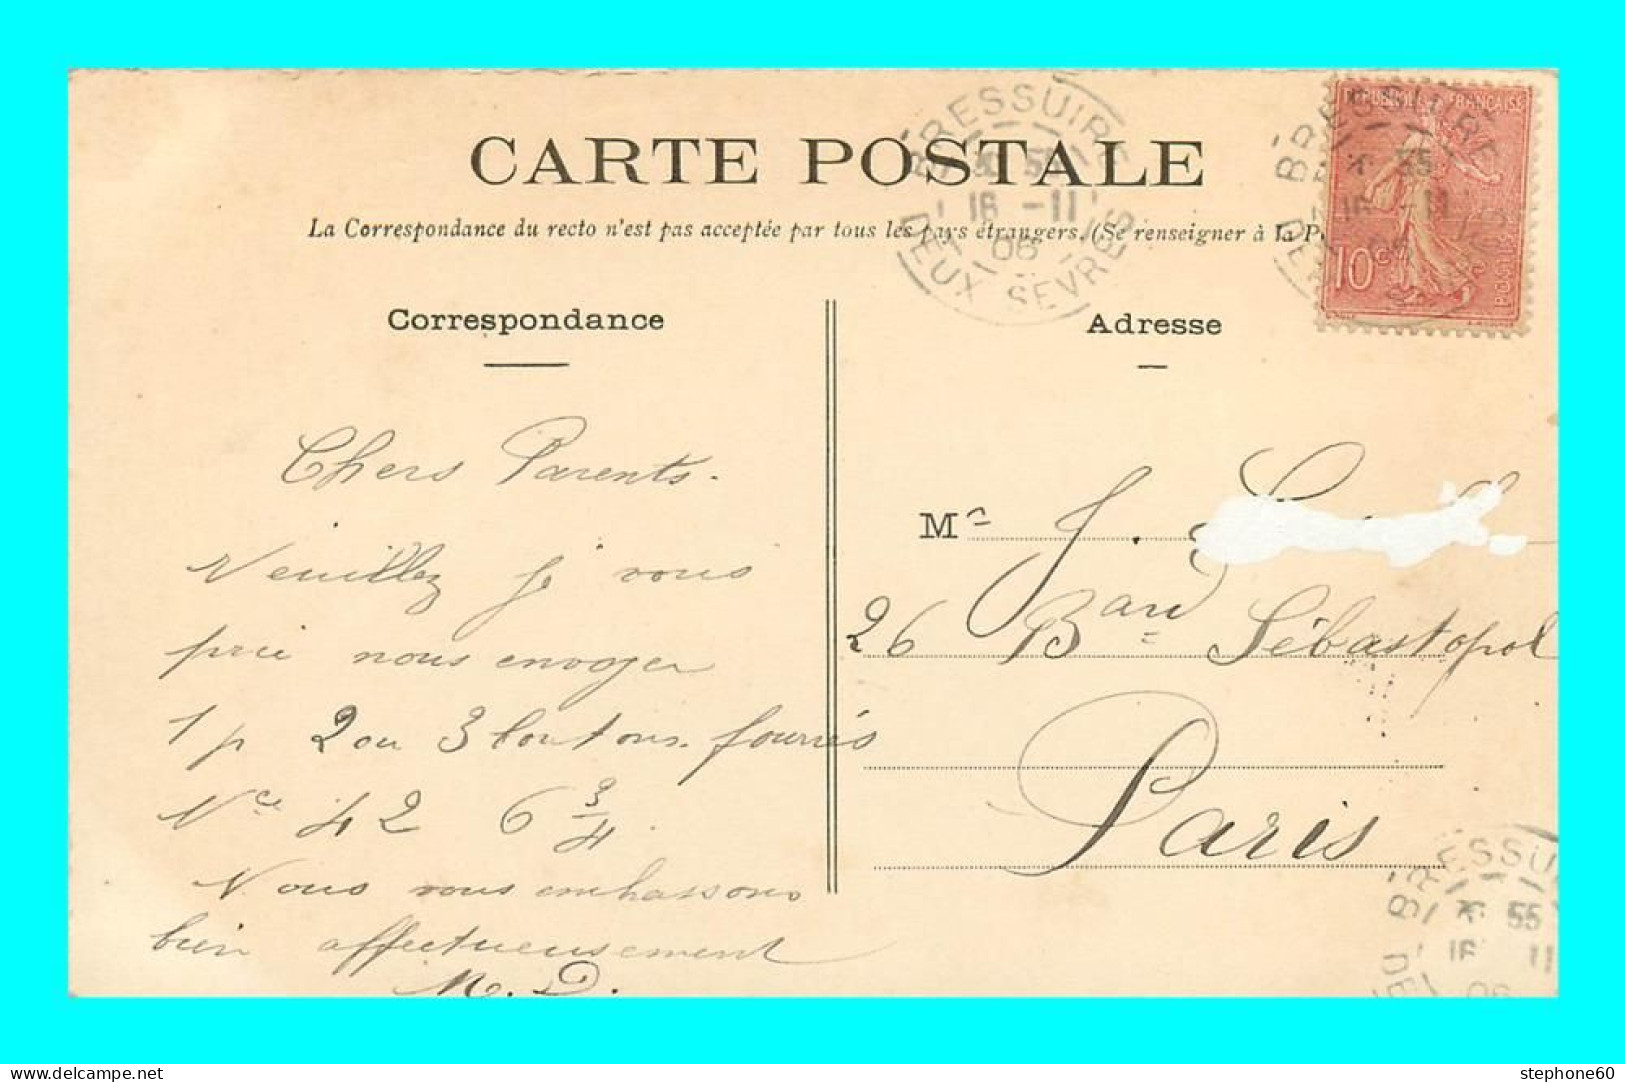 CARTE POSTALE
La Correspondance du recto n'est pas acceptée par tous les pays étrangers. (Se renseigner à la P
BRESSUIRE
55
16 -11
06
DEUX SEVRES
REPUBLIQUE FRANÇAISE
10c
POSTES
BRESSUIRE
55
16 -11
06
Correspondance
Chers Parents.
Veuillez je vous
prie nous envoyer
1 p 2 ou 3 boutons fourrés
Nce 42 6 3/4
Nous vous embrassons
bien affectueusement
M. D.
Adresse
Mr J.
26 Bard Sébastopol
Paris
BRESSUI
55
16 11
06
DE
stephone60